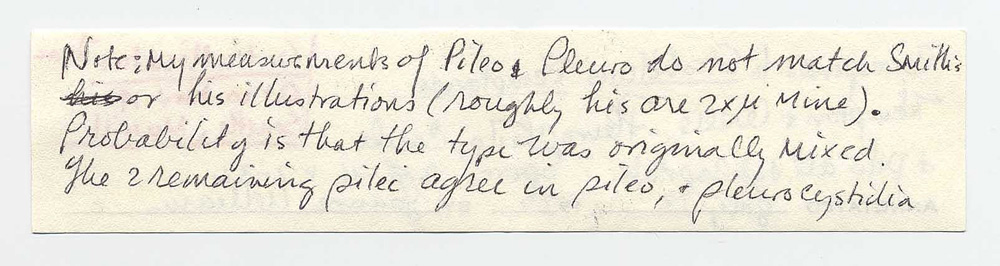 Note: My measurements of Pileo & Pleuro do not match Smith's
his or his illustrations (roughly his are 2xµ mine).
Probability is that the type was originally mixed.
The 2 remaining pilei agree in pileo, + pleurocystidia